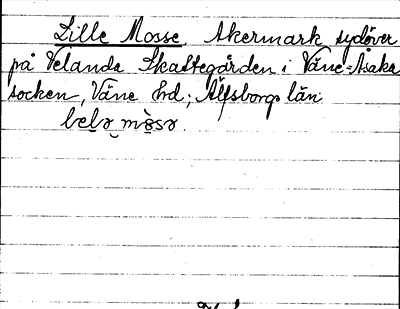 Lille Mosse. Åkermark sydöver
på Velanda Skattegården i Väne-Åsaka
socken, Väne hd; Älfsborgs län.